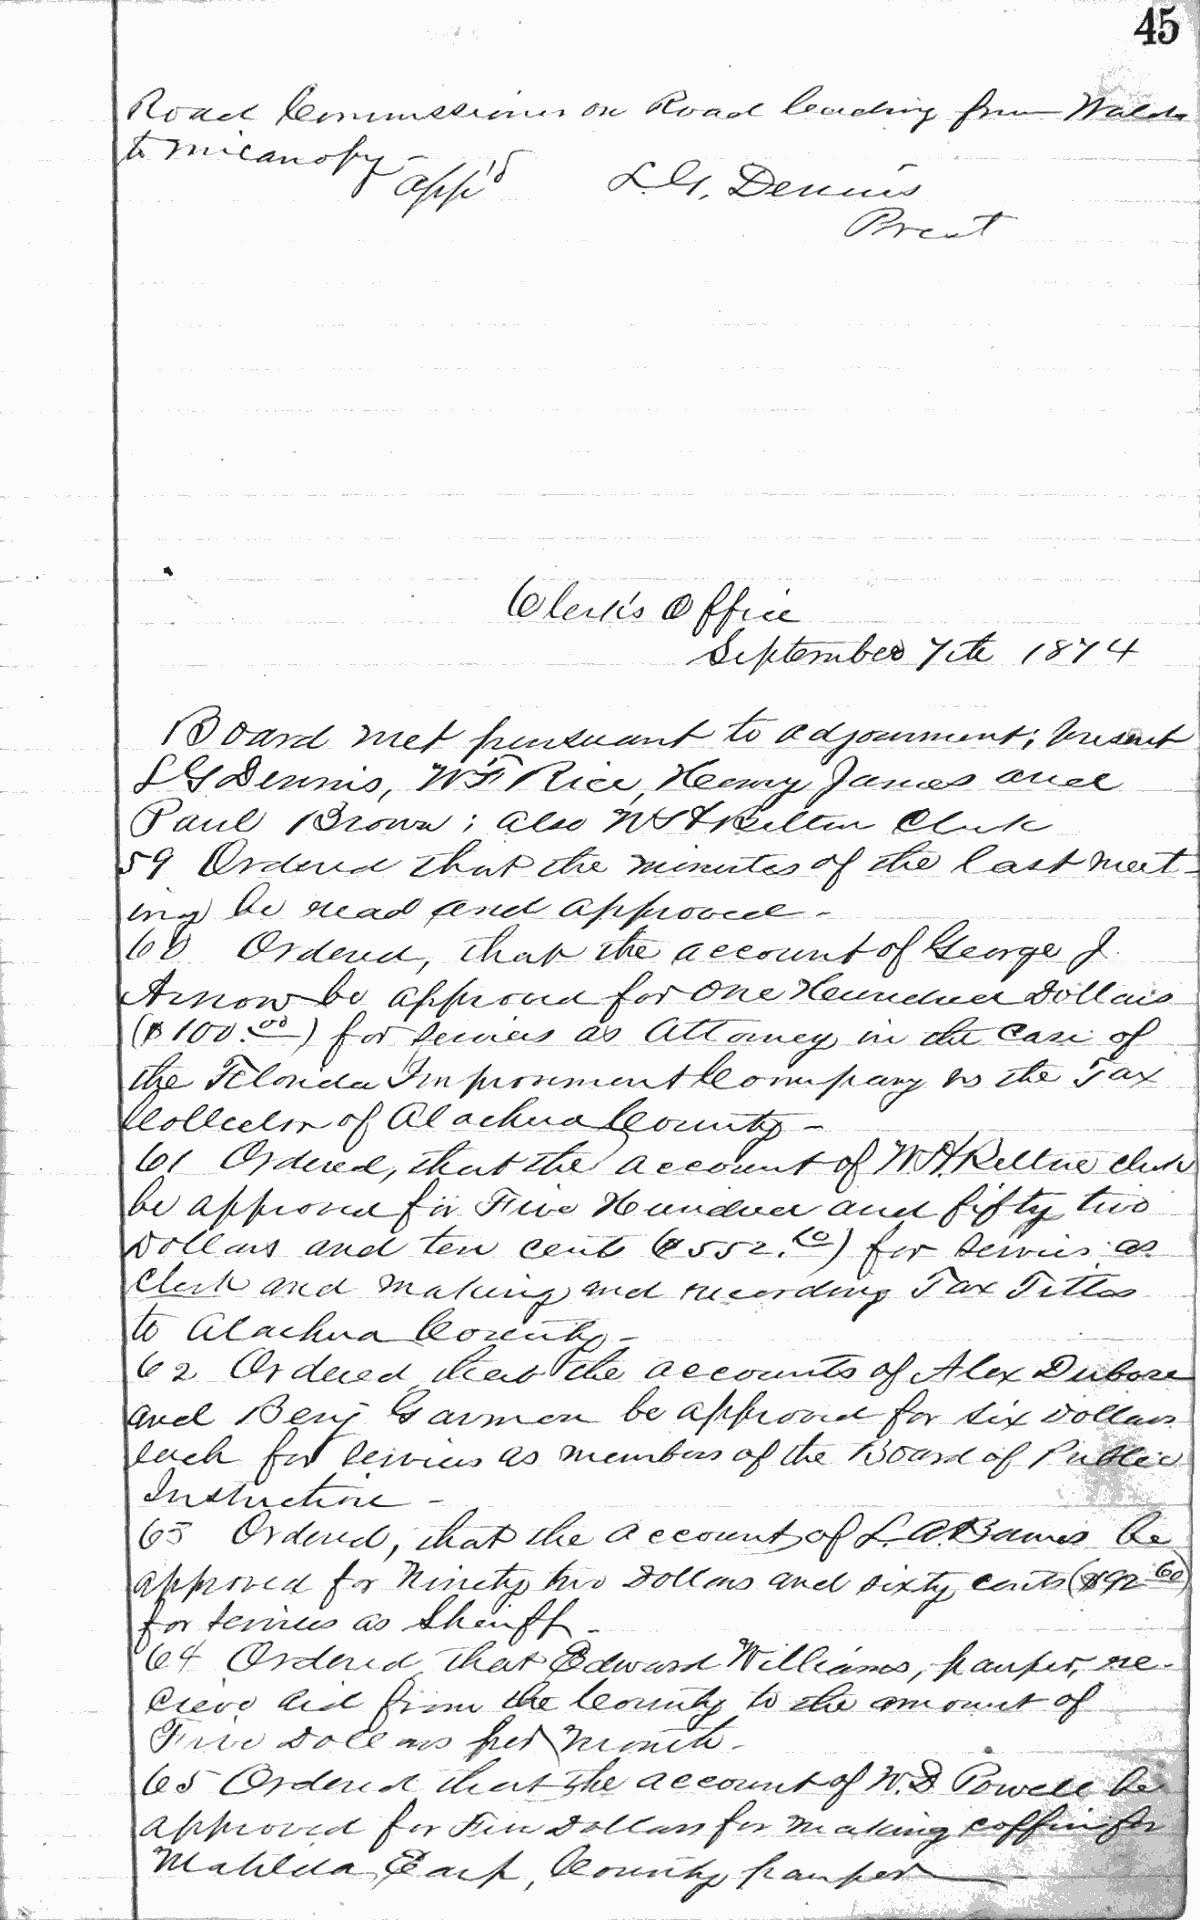 45
Road Commissioner on Road leading from Waldo
to Micanopy -
app'd L.G. Dennis
Prest
Clerk's Office
September 7th 1874
Board met pursuant to adjournment; present
L G Dennis, W F Rice, Henry James and
Paul Brown; also Clerk
59 Ordered that the minutes of the last meet-
ing be read and approved -
60 Ordered, that the account of George J.
Arnow be approved for One Hundred Dollars
($100.00) for services as Attorney in the case of
the Florida Improvement Company vs the Tax
Collector of Alachua County -
61 Ordered, that the account of Clerk
be approved for Five Hundred and fifty two
Dollars and ten cents ($552.10) for services as
Clerk and making and recording Tax Titles
to Alachua County -
62 Ordered that the accounts of Alex Dubose
and Benj Garmon be approved for six Dollars
each for services as members of the Board of Public
Instruction -
63 Ordered, that the account of L.A. Barnes be
approved for Ninety two Dollars and sixty cents ($92.60)
for services as Sheriff -
64 Ordered that Edward Williams, pauper, re-
cieve aid from the County to the amount of
Five Dollars per Month -
65 Ordered that the account of W.D. Powell be
approved for Five Dollars for making coffin for
Matilda Earp, County pauper